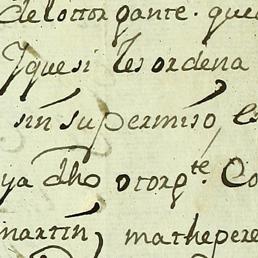 delottorgante. que
Yquesi les ordena
sin supermiso, es
ya dho otorg.te Co
martin, mathepere